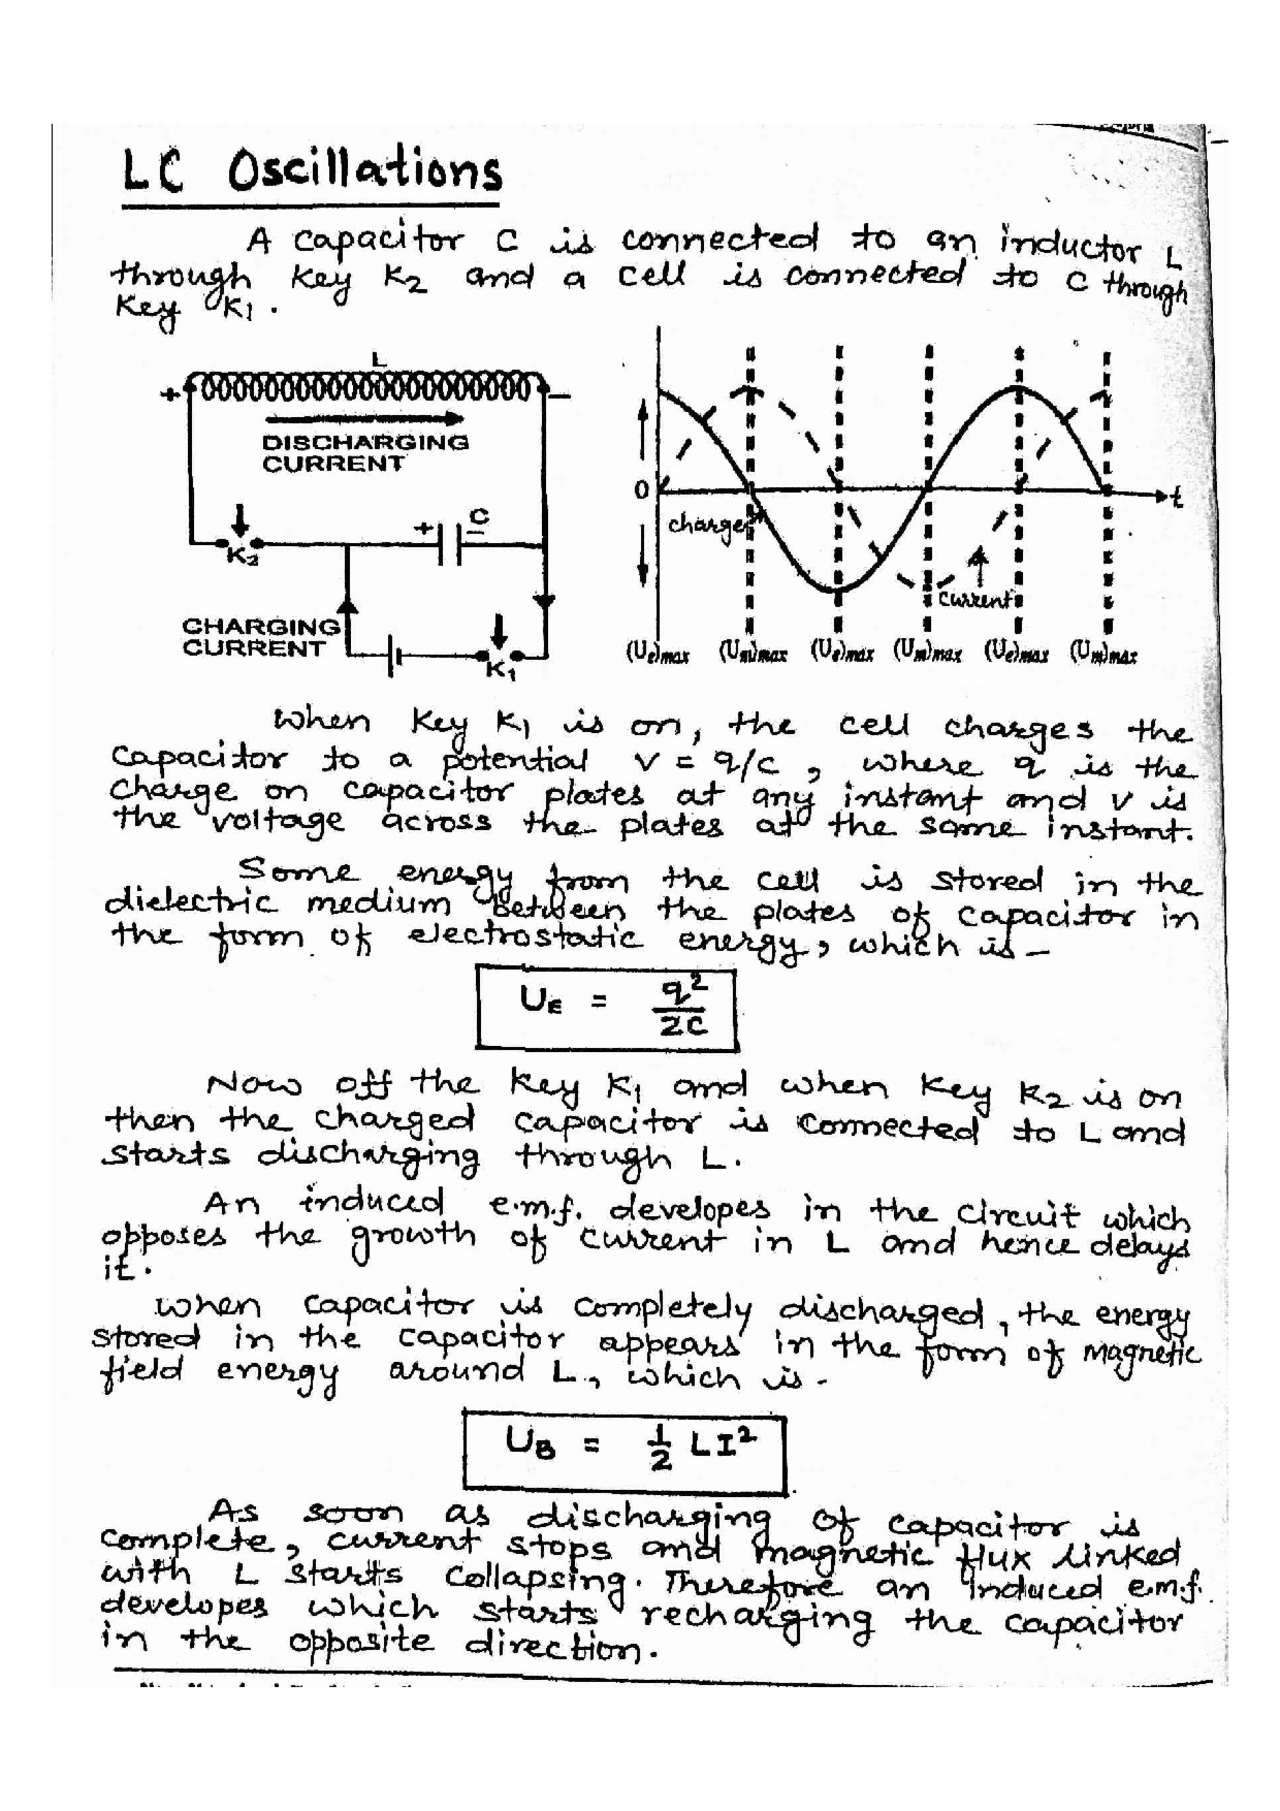 LC Oscillations
A capacitor C is connected to an inductor L
through key K2 and a cell is connected to C through
key K1.
L
+ −
DISCHARGING
CURRENT
+ C −
K2
CHARGING
CURRENT
K1
0
t
charge
current
(Ue)max (Um)max (Ue)max (Um)max (Ue)max (Um)max
When key K1 is on, the cell charges the
capacitor to a potential V = q/c, where q is the
charge on capacitor plates at any instant and V is
the voltage across the plates at the same instant.
Some energy from the cell is stored in the
dielectric medium between the plates of capacitor in
the form of electrostatic energy, which is –
UE = q²/2C
Now off the key K1 and when key K2 is on
then the charged capacitor is connected to L and
starts discharging through L.
An induced e.m.f. developes in the circuit which
opposes the growth of current in L and hence delays
it.
When capacitor is completely discharged, the energy
stored in the capacitor appears in the form of magnetic
field energy around L, which is -
UB = 1/2 LI²
As soon as discharging of capacitor is
complete, current stops and magnetic flux linked
with L starts collapsing. Therefore an induced e.m.f.
developes which starts recharging the capacitor
in the opposite direction.